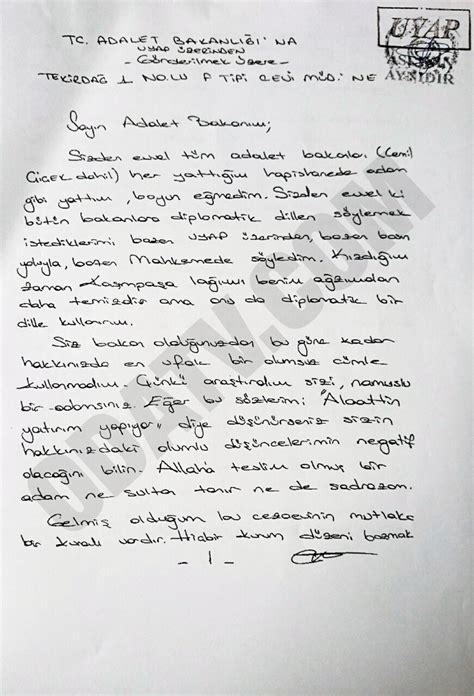 UYAP
ASLININ
AYNIDIR
TC. ADALET BAKANLIĞI'NA
UYAP ÜZERİNDEN
- Gönderilmek Üzere -
TEKİRDAĞ 1 NOLU F TİPİ CEVİ MÜD. NE
Sayın Adalet Bakanım;
Sizden evvel tüm adalet bakanları (Cemil
Çiçek dahil) her yattığım hapishanede adam
gibi yattım, boyun eğmedim. Sizden evvel ki
bütün bakanlara diplomatik dilden söylemek
istediklerimi bazen UYAP üzerinden, bazen basın
yoluyla, bazen Mahkemede söyledim. Kızdığım
zaman Kasımpaşa lağımı benim ağzımdan
daha temizdir ama onu da diplomatik bir
dille kullanırım.
Siz bakan olduğunuzdan bu güne kadar
hakkınızda en ufak bir olumsuz cümle
kullanmadım. Çünkü araştırdım sizi, namuslu
bir adamsınız. Eğer bu sözlerim; "Alaattin
yatırım yapıyor" diye düşünürseniz sizin
hakkınızdaki olumlu düşüncelerimin negatif
olacağını bilin. Allah'a teslim olmuş bir
adam ne sultan tanır ne de sadrazam.
Gelmiş olduğum bu cezaevinin mutlaka
bir kuralı vardır. Hiçbir kurum düzeni bozmak
- 1 -
ODATV.COM